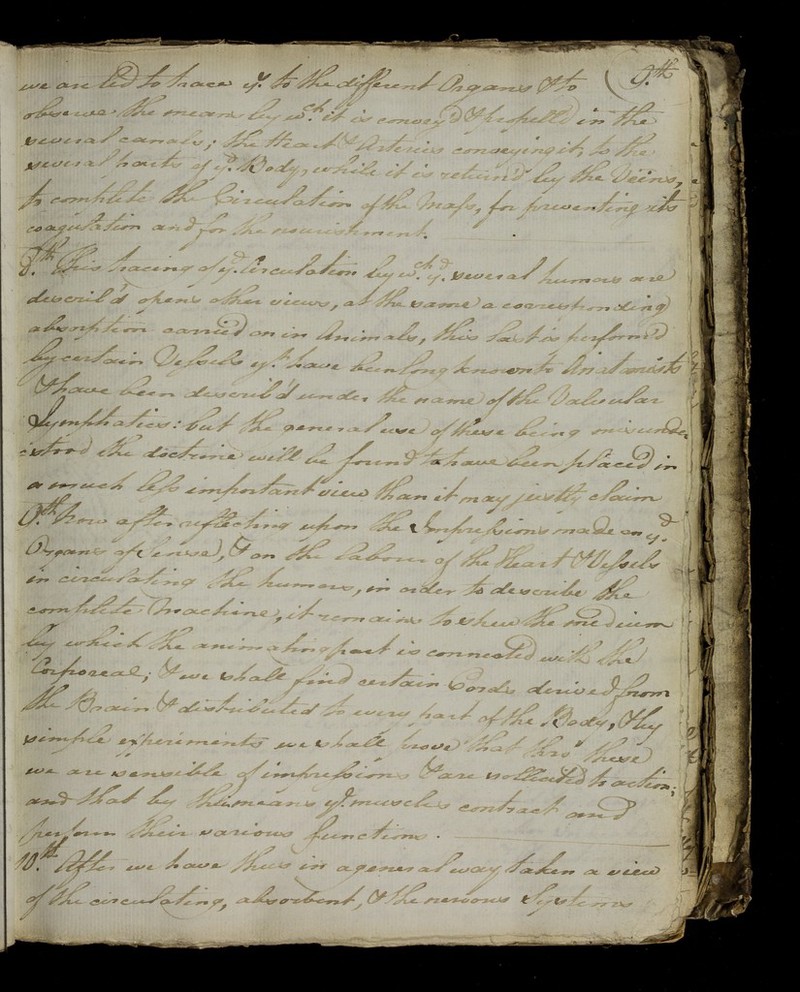 9.th
we are led to trace y.m to the different Organs & to
observe the means by w.ch it is convey'd & propelled in the
several canals; the Heart & Arteries conveying it, to the
several parts of y.e Body, while it is return'd by the Veins,
to complete the Circulation of the Mass, for preventing its
coagulation and for the nourishment.
8.th This tracing of y.e Circulation by w.ch y.e several humors are
describ'd opens other views, at the same a corresponding
absorption carried on in Animals, this last is perform'd
by certain Vessels y.t have been long known to Anatomists
& have been describ'd under the name of the Valvular
Lymphatics: but the general use of these being misunder
=stood the doctrine will be found to have been placed in
a much less important view than it may justly claim
9.th Now after reflecting upon the Impressions made on y.e
Organs of Sense, & on the labour of the Heart & Vessels
in circulating the humors, in order to describe the
complete Machine, it remains to shew the medium
by which the animating part is connected with the
Corporeal; & we shall find certain Cords derived from
the Brain & distributed to every part of the Body, & by
simple experiments we shall prove that thro' these
we are sensible of impressions & are sollicited to action;
and that by this means y.e muscles contract and
perform their various functions.
10.th After we have thus in a general way taken a view
of the circulating, absorbent, & the nervous Systems